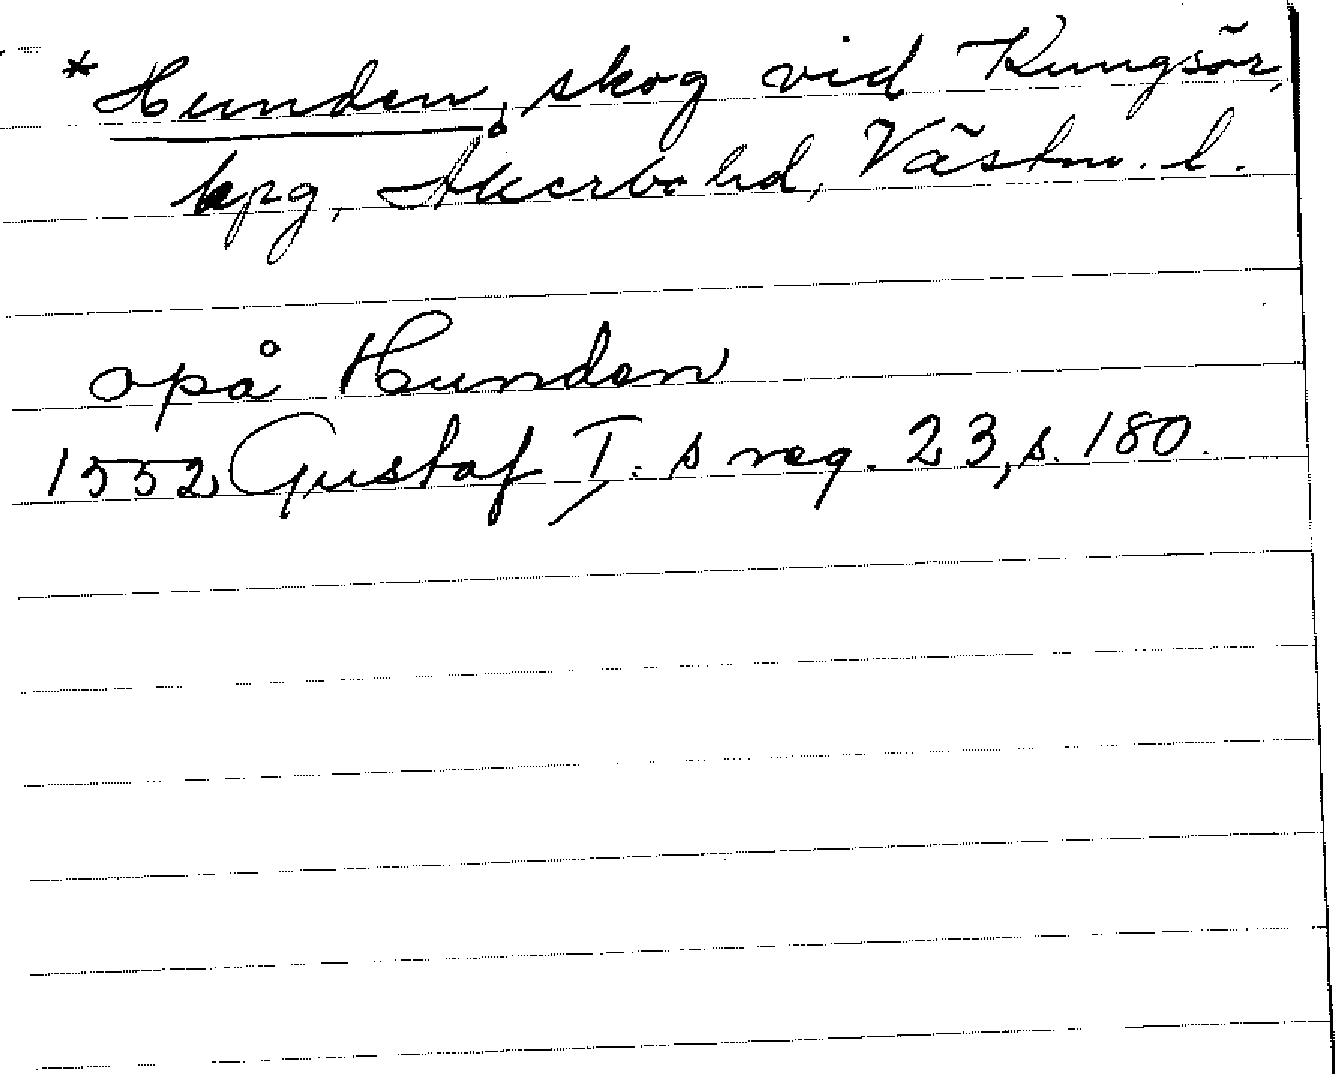 * Hunden, skog vid Kungsör,
kpg, Åkerbo hd, Västm. l.
opå Hunden
1552 Gustaf I:s reg. 23, s. 180.